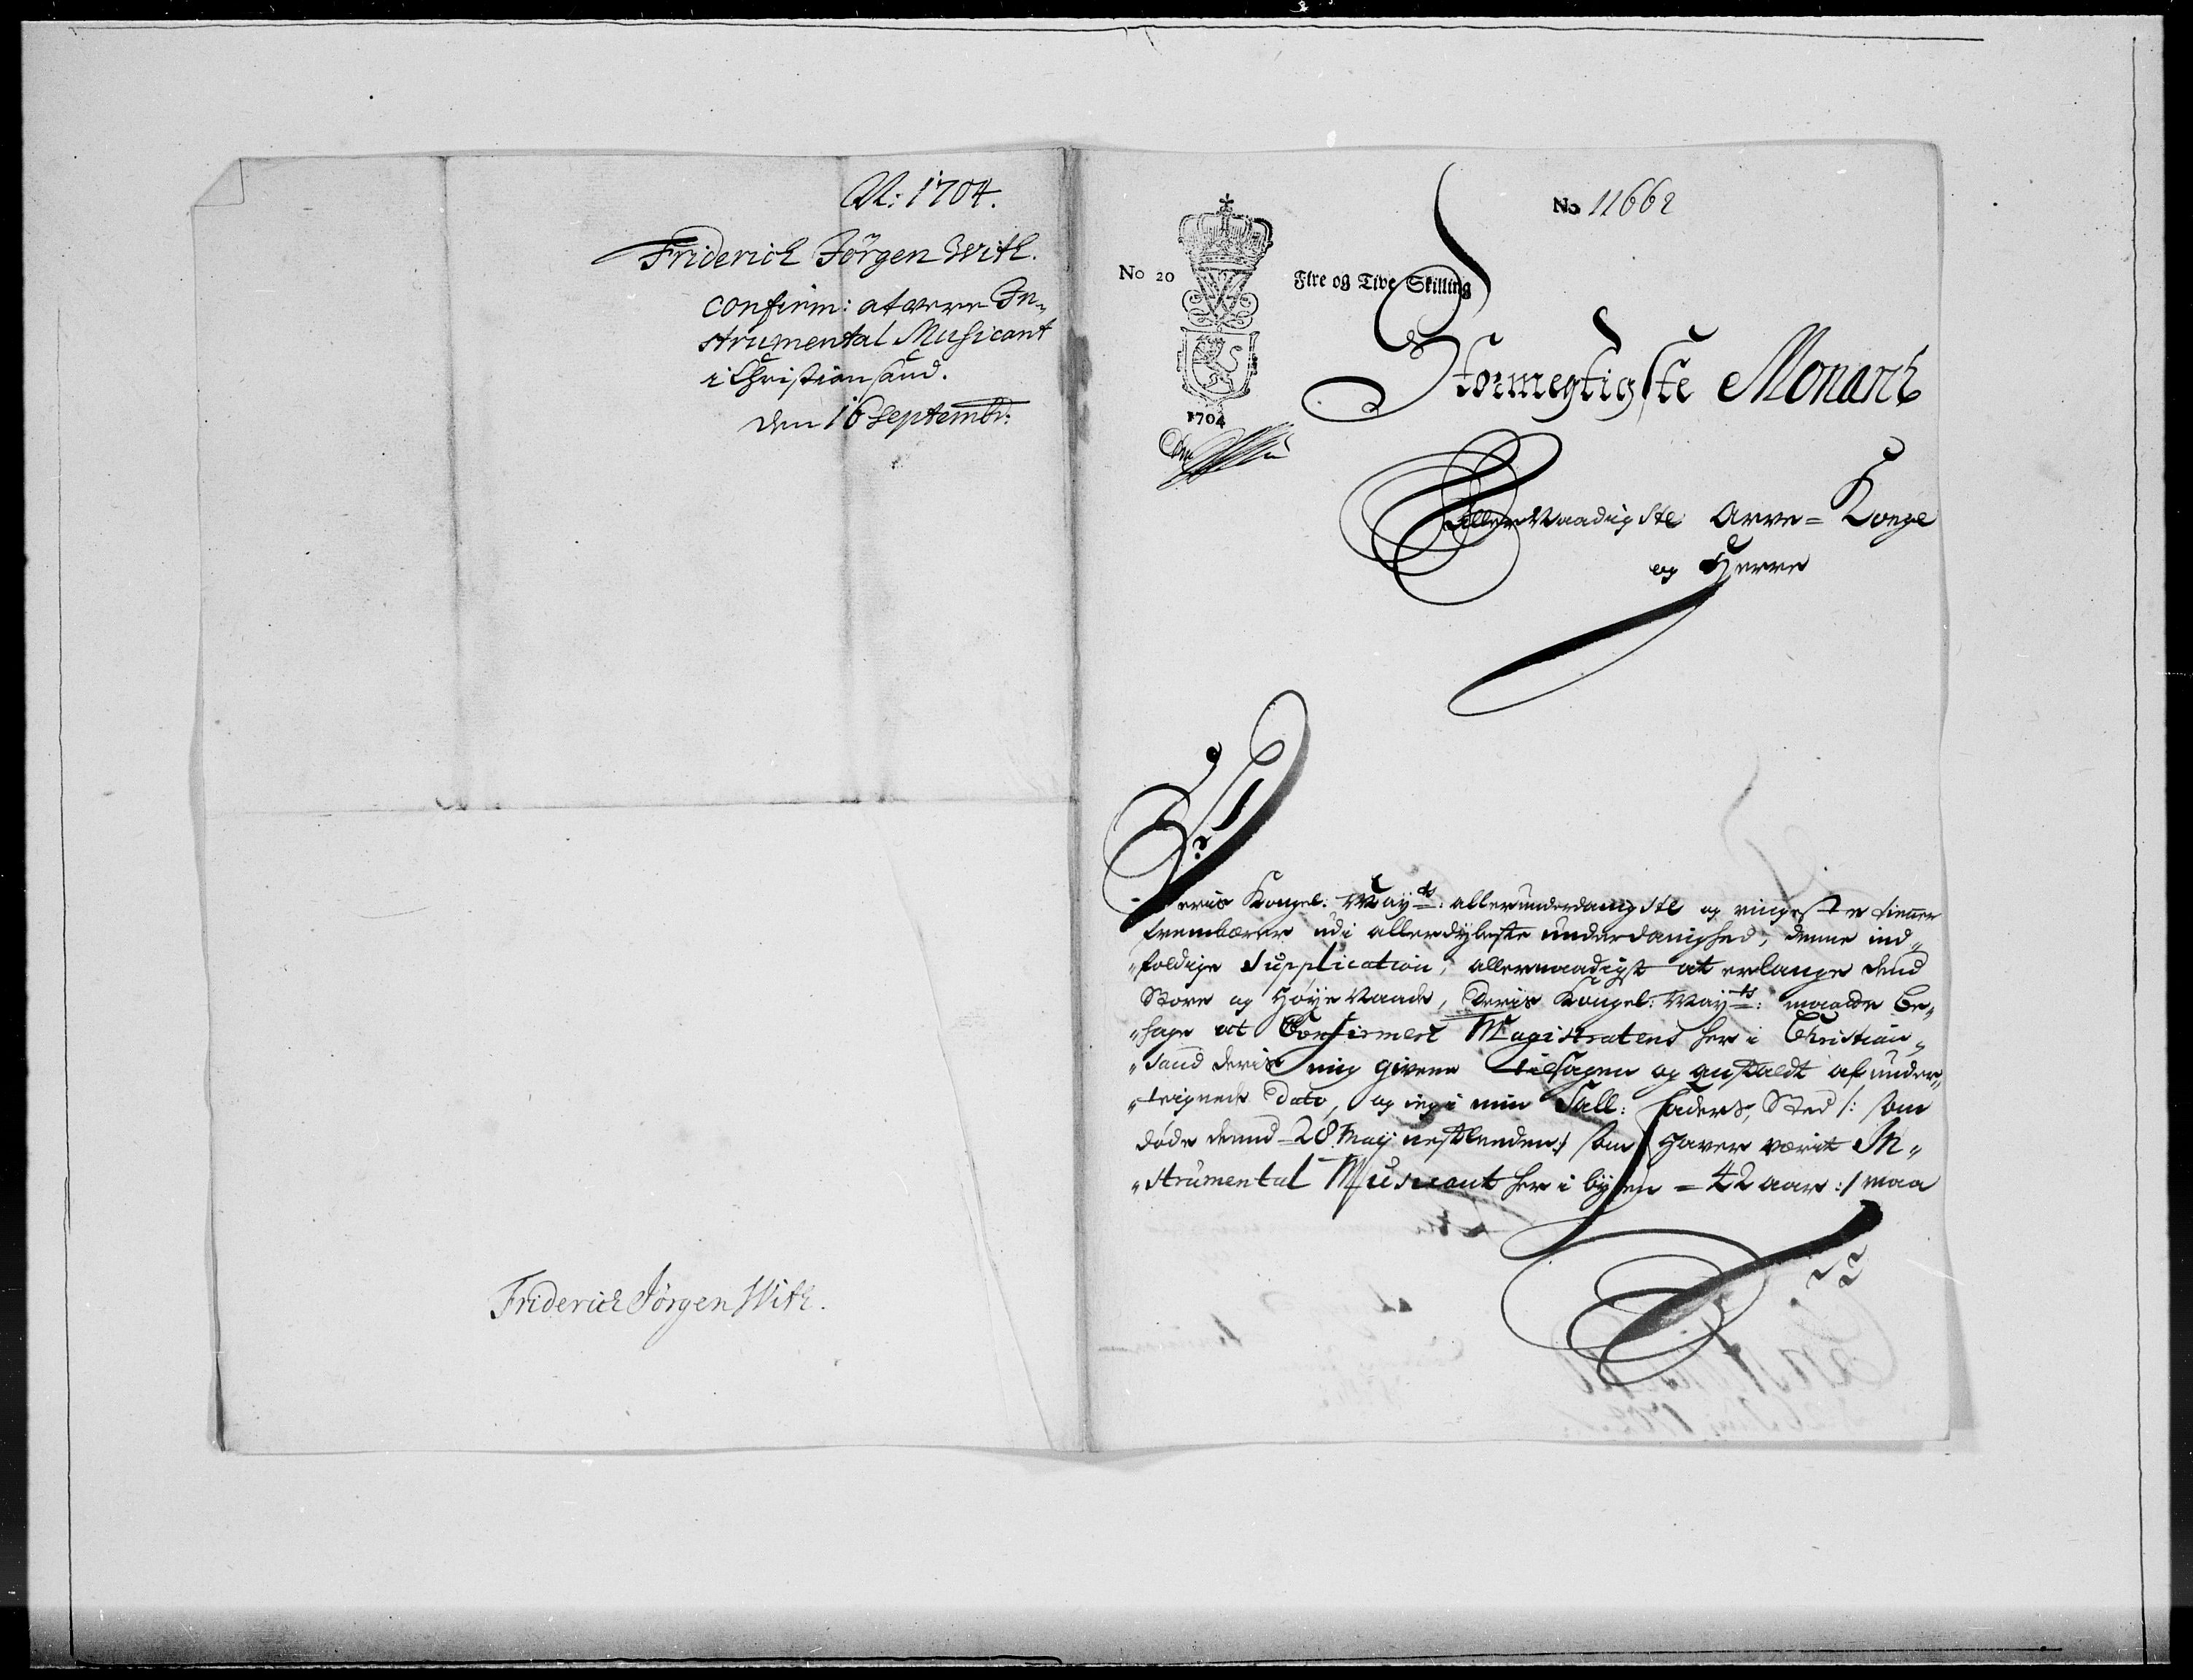 A: 1704.
Friderich Jörgen With.
confirm: at være In„
strumental Musicant
i Christiansand.
den 16 Septembr:
Friderich Jörgen With.
No 11662
No 20
Fire og Tive Skilling
1704
Stormegtigste Monarch
Allernaadigste Arve= Konge
og Herre
Deris Kongel: May.ts: allerunderdanigste og ringeste tienner
frembærer udi allerdybeste underdanighed, denne ind„
„foldige Supplication, allernaadigst at erlange dend
Store og Høye Naade, Deris Kongel: May.ts: maatte be„
„hage at Confirmere Magistratens her i Christian„
„sand deris mig givene tilsagen og anstaldt af under„
„teignede Dato, og ieg i min Sall: Faders, Sted /: som
døde dennd 28 May nestleeden :/ som haver værit In„
„strumental Musicant her i byen = 42 aar :/ maa